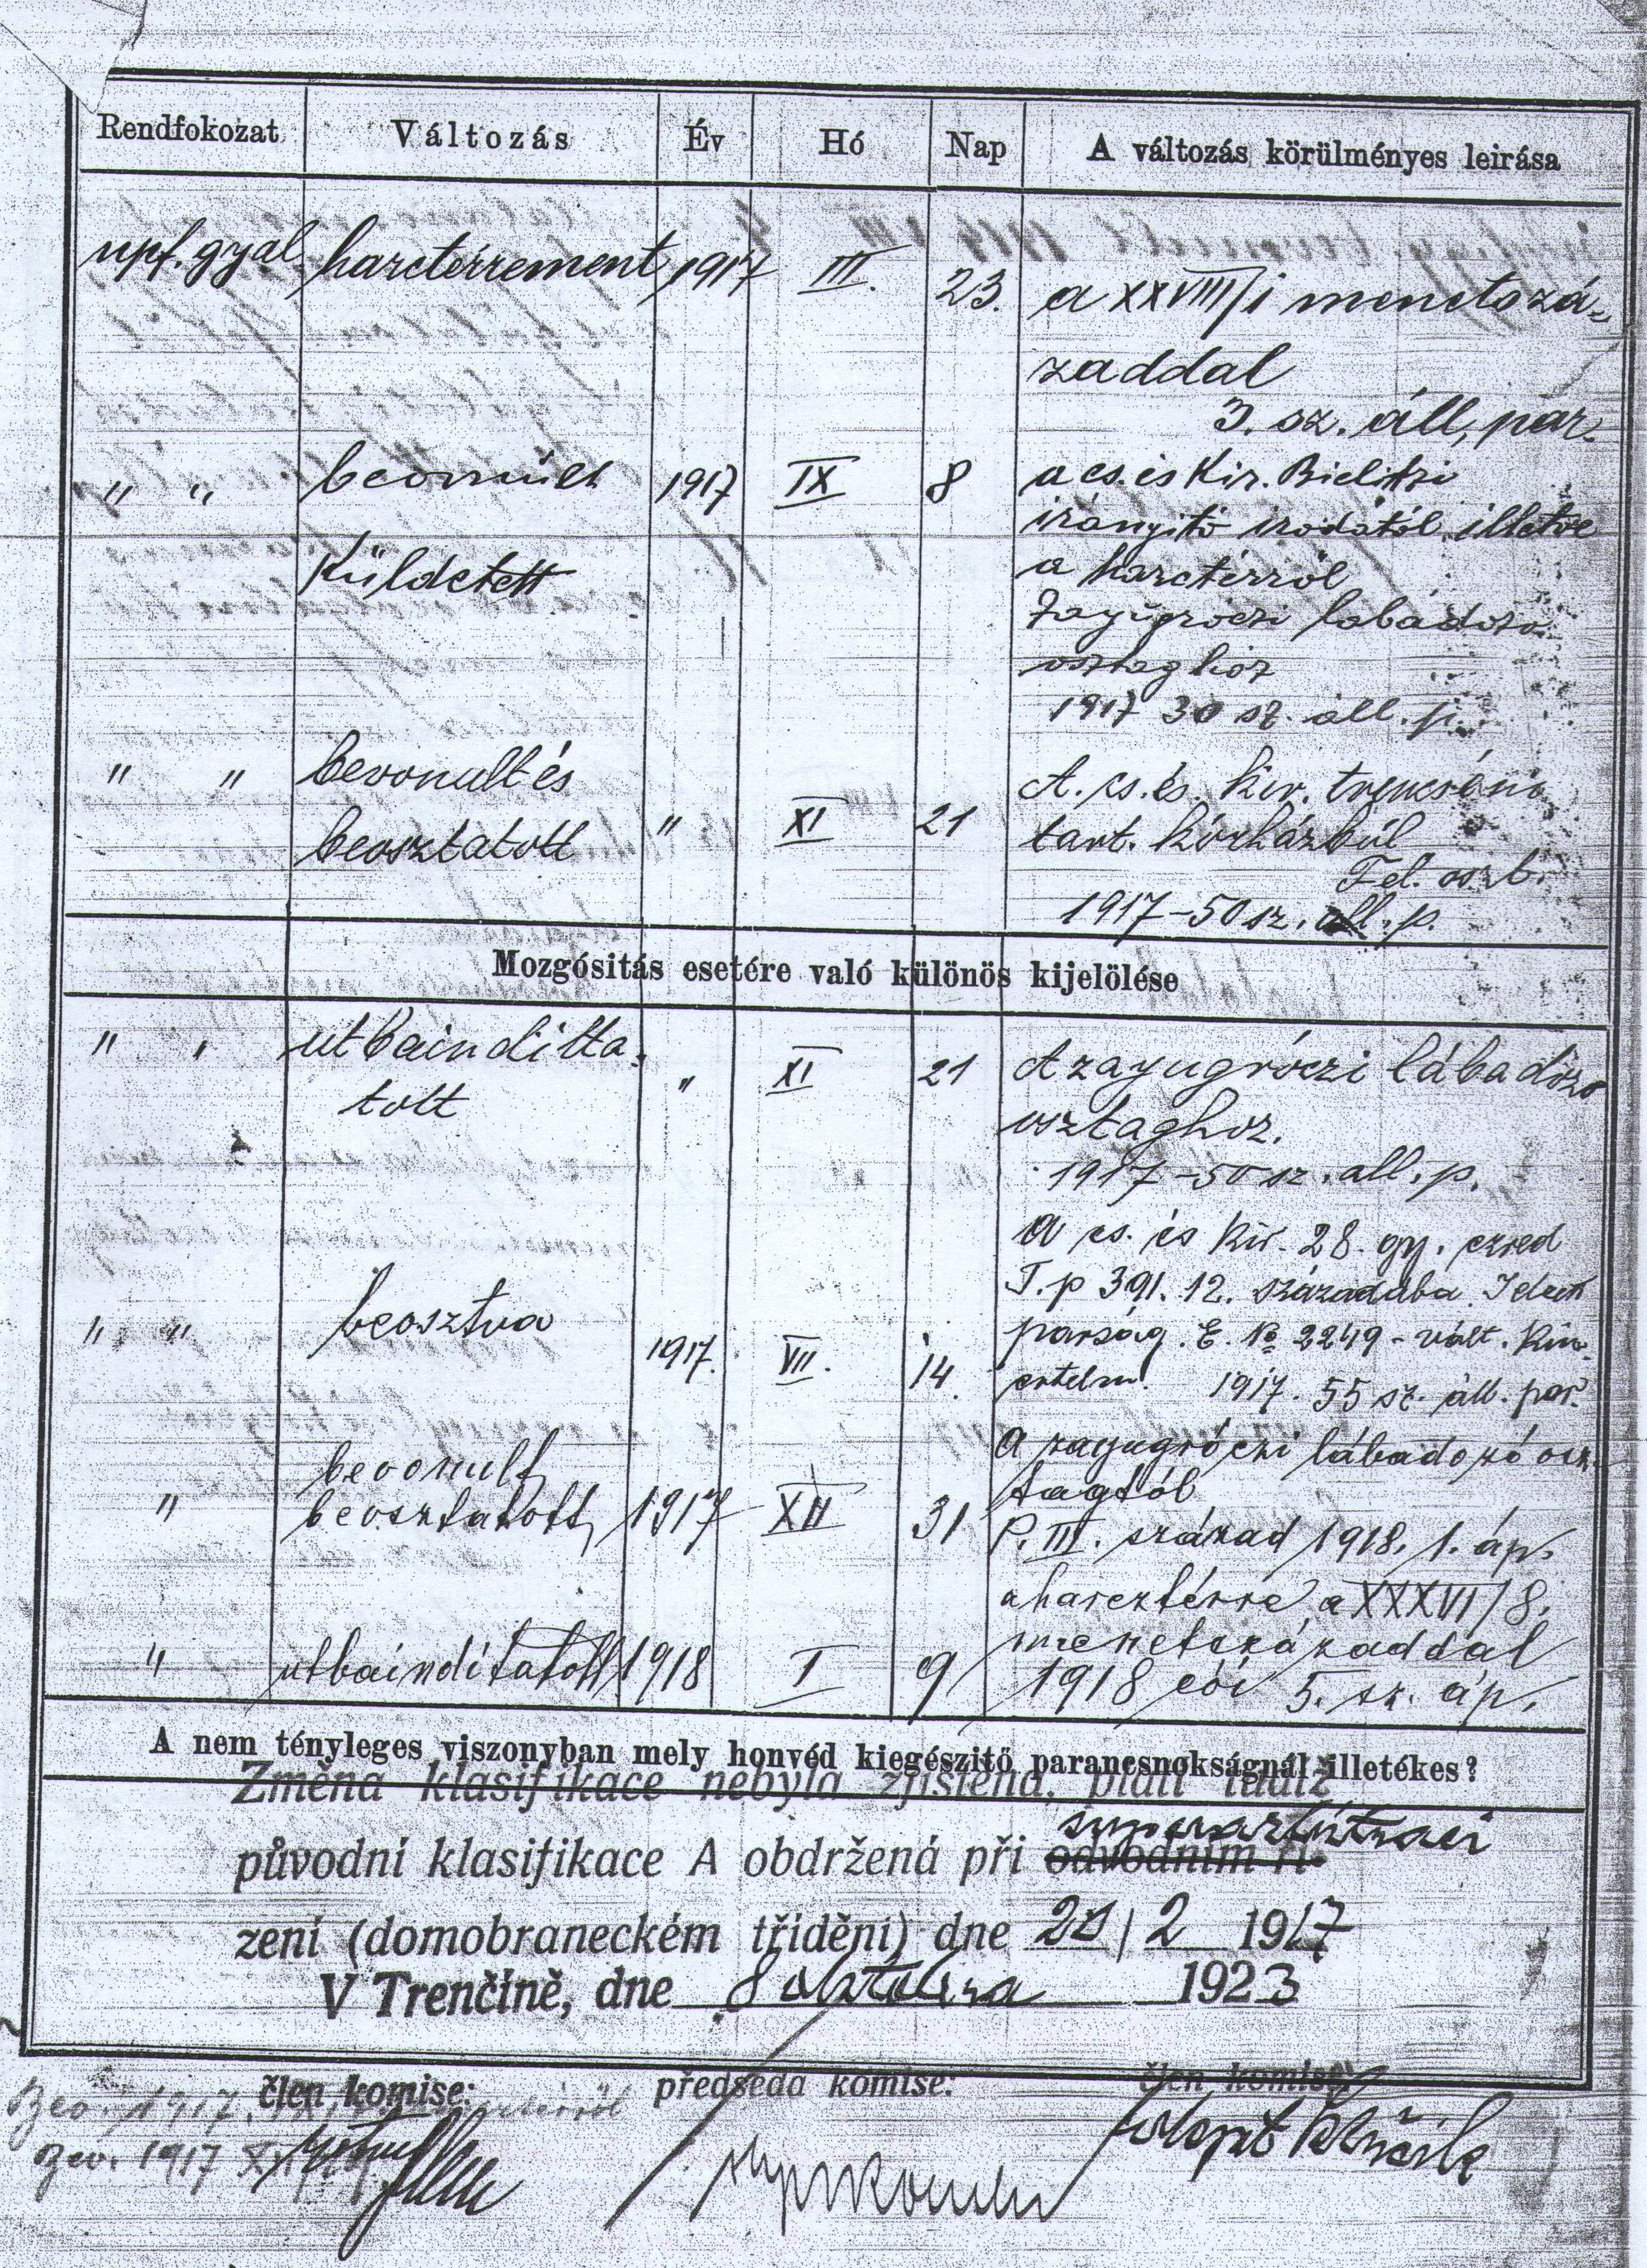 Rendfokozat Változás Év Hó Nap A változás körülményes leirása
npf. gyal. harctérrement 1917 III. 23. a XXVIII/1 menetszá-
zaddal
3. sz. áll. par.
" " bevonult 1917 IX 8 a cs. és Kir. Bielitzi
irányitó irodától illetve
Küldetett a harctérről
Zayugróczi lábadozó
osztaghoz
1917 30 sz. áll. p.
" " bevonult és A. cs. és. Kir. trencséni
beosztatott " XI 21 tart. kórházból
Fel. oszt.
1917-50 sz. áll. p.
Mozgósitás esetére való különös kijelölése
" " utbaindítta- " XI 21 A zayugróczi lábadozó
tott osztaghoz.
1917-50 sz. áll. p.
a cs. és Kir. 28. gy. ezred
T. p 391. 12. századába
" " beosztva 1917. VII. 14. E. № 2249 - vált. Kim.
értelm. 1917. 55 sz. áll. par.
bevonult a zayugróczi lábadozó osz-
tagtól
" beosztatott 1917 XII 31 P. III. század 1918. 1. áp.
a harcztérre a XXXVI/8.
menetszázaddal
" utbainditatott 1918 I 9 1918 évi 5. sz. áp.
A nem tényleges viszonyban mely honvéd kiegészitö parancsnokságnál illetékes?
Změna klasifikace nebyla zjištěna, platí tudíž
superarbitraci
původní klasifikace A obdržená při odvodním ří-
zení (domobraneckém třídění) dne 20/2 1917
V Trenčíně, dne 8 oktobra 1923
člen komise: předseda komise: člen komise:
1917
Bev. 1917 XI.